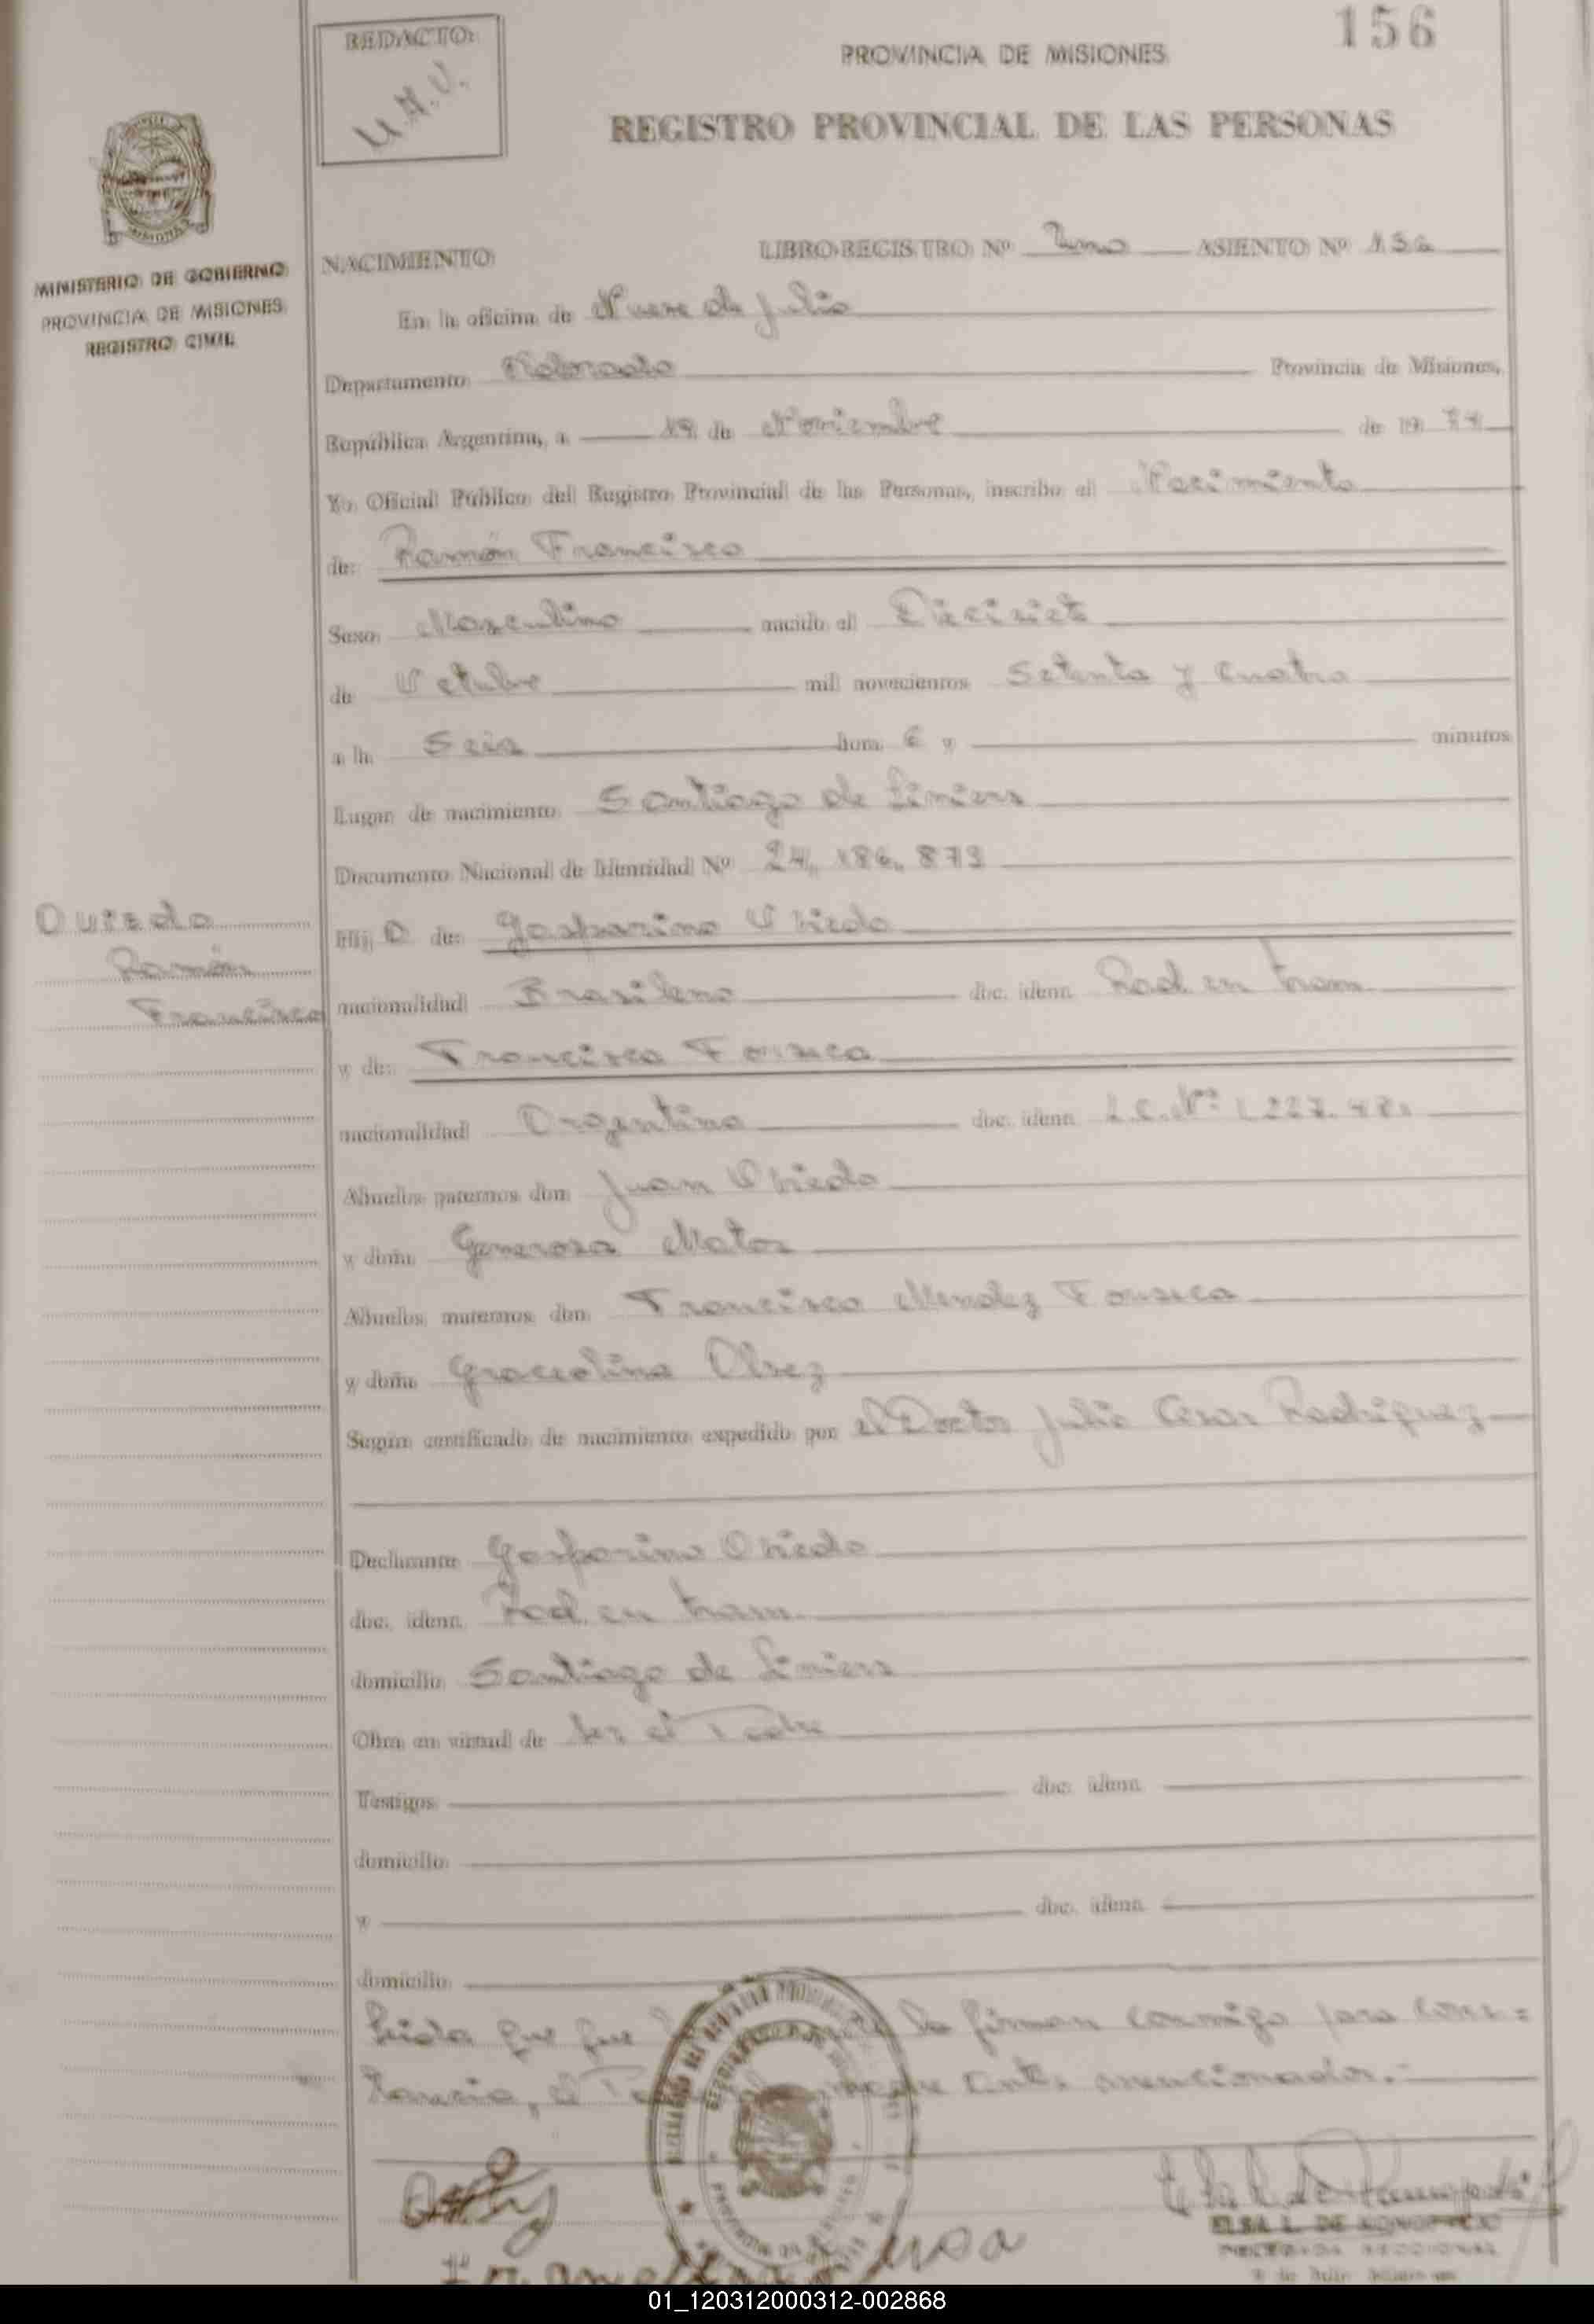 156
REDACTO:
U.A.V.
PROVINCIA DE MISIONES
REGISTRO PROVINCIAL DE LAS PERSONAS
MINISTERIO DE GOBIERNO
PROVINCIA DE MISIONES
REGISTRO CIVIL
NACIMIENTO LIBRO REGISTRO Nº Uno ASIENTO Nº 156
En la oficina de Nueve de Julio
Departamento Eldorado Provincia de Misiones,
República Argentina, a 19 de Noviembre de 19 74
Yo Oficial Público del Registro Provincial de las Personas, inscribo el Nacimiento
de: Ramón Francisco
Sexo Masculino nacido el Diecisiete
de Octubre mil novecientos Setenta y Cuatro
a la Seis hora 6 y minutos
Lugar de nacimiento Santiago de Liniers
Documento Nacional de Identidad Nº 24.186.873
Oviedo
Ramón
Francisco
Hij O de: Gasparino Oviedo
nacionalidad Brasileno doc. ident. Rad. en tram
y de: Francisca Fonseca
nacionalidad Argentina doc. ident. L.C. Nº
Abuelos paternos don Juan Oviedo
y doña Generosa Matos
Abuelos maternos don Francisco Mendez Fonseca
y doña Gracolina
Según certificado de nacimiento expedido por el Doctor Julio Cesar Rodriguez
Declarante Gasparino Oviedo
doc. ident. Rad. en tram.
domicilio Santiago de Liniers
Obra en virtud de Ser el Padre
Testigos doc. ident.
domicilio
y doc. ident.
domicilio
Leida que fue la firman conmigo para cons=
tancia, el antes mencionados.-
ELSA L. DE
01_120312000312-002868